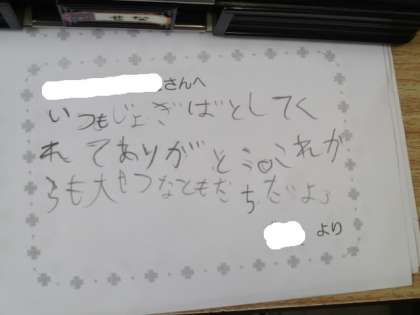 せな
さんへ
いつもじょぎばとしてく
れてありがとう。これが
らも大せつなともだちだよ。
より